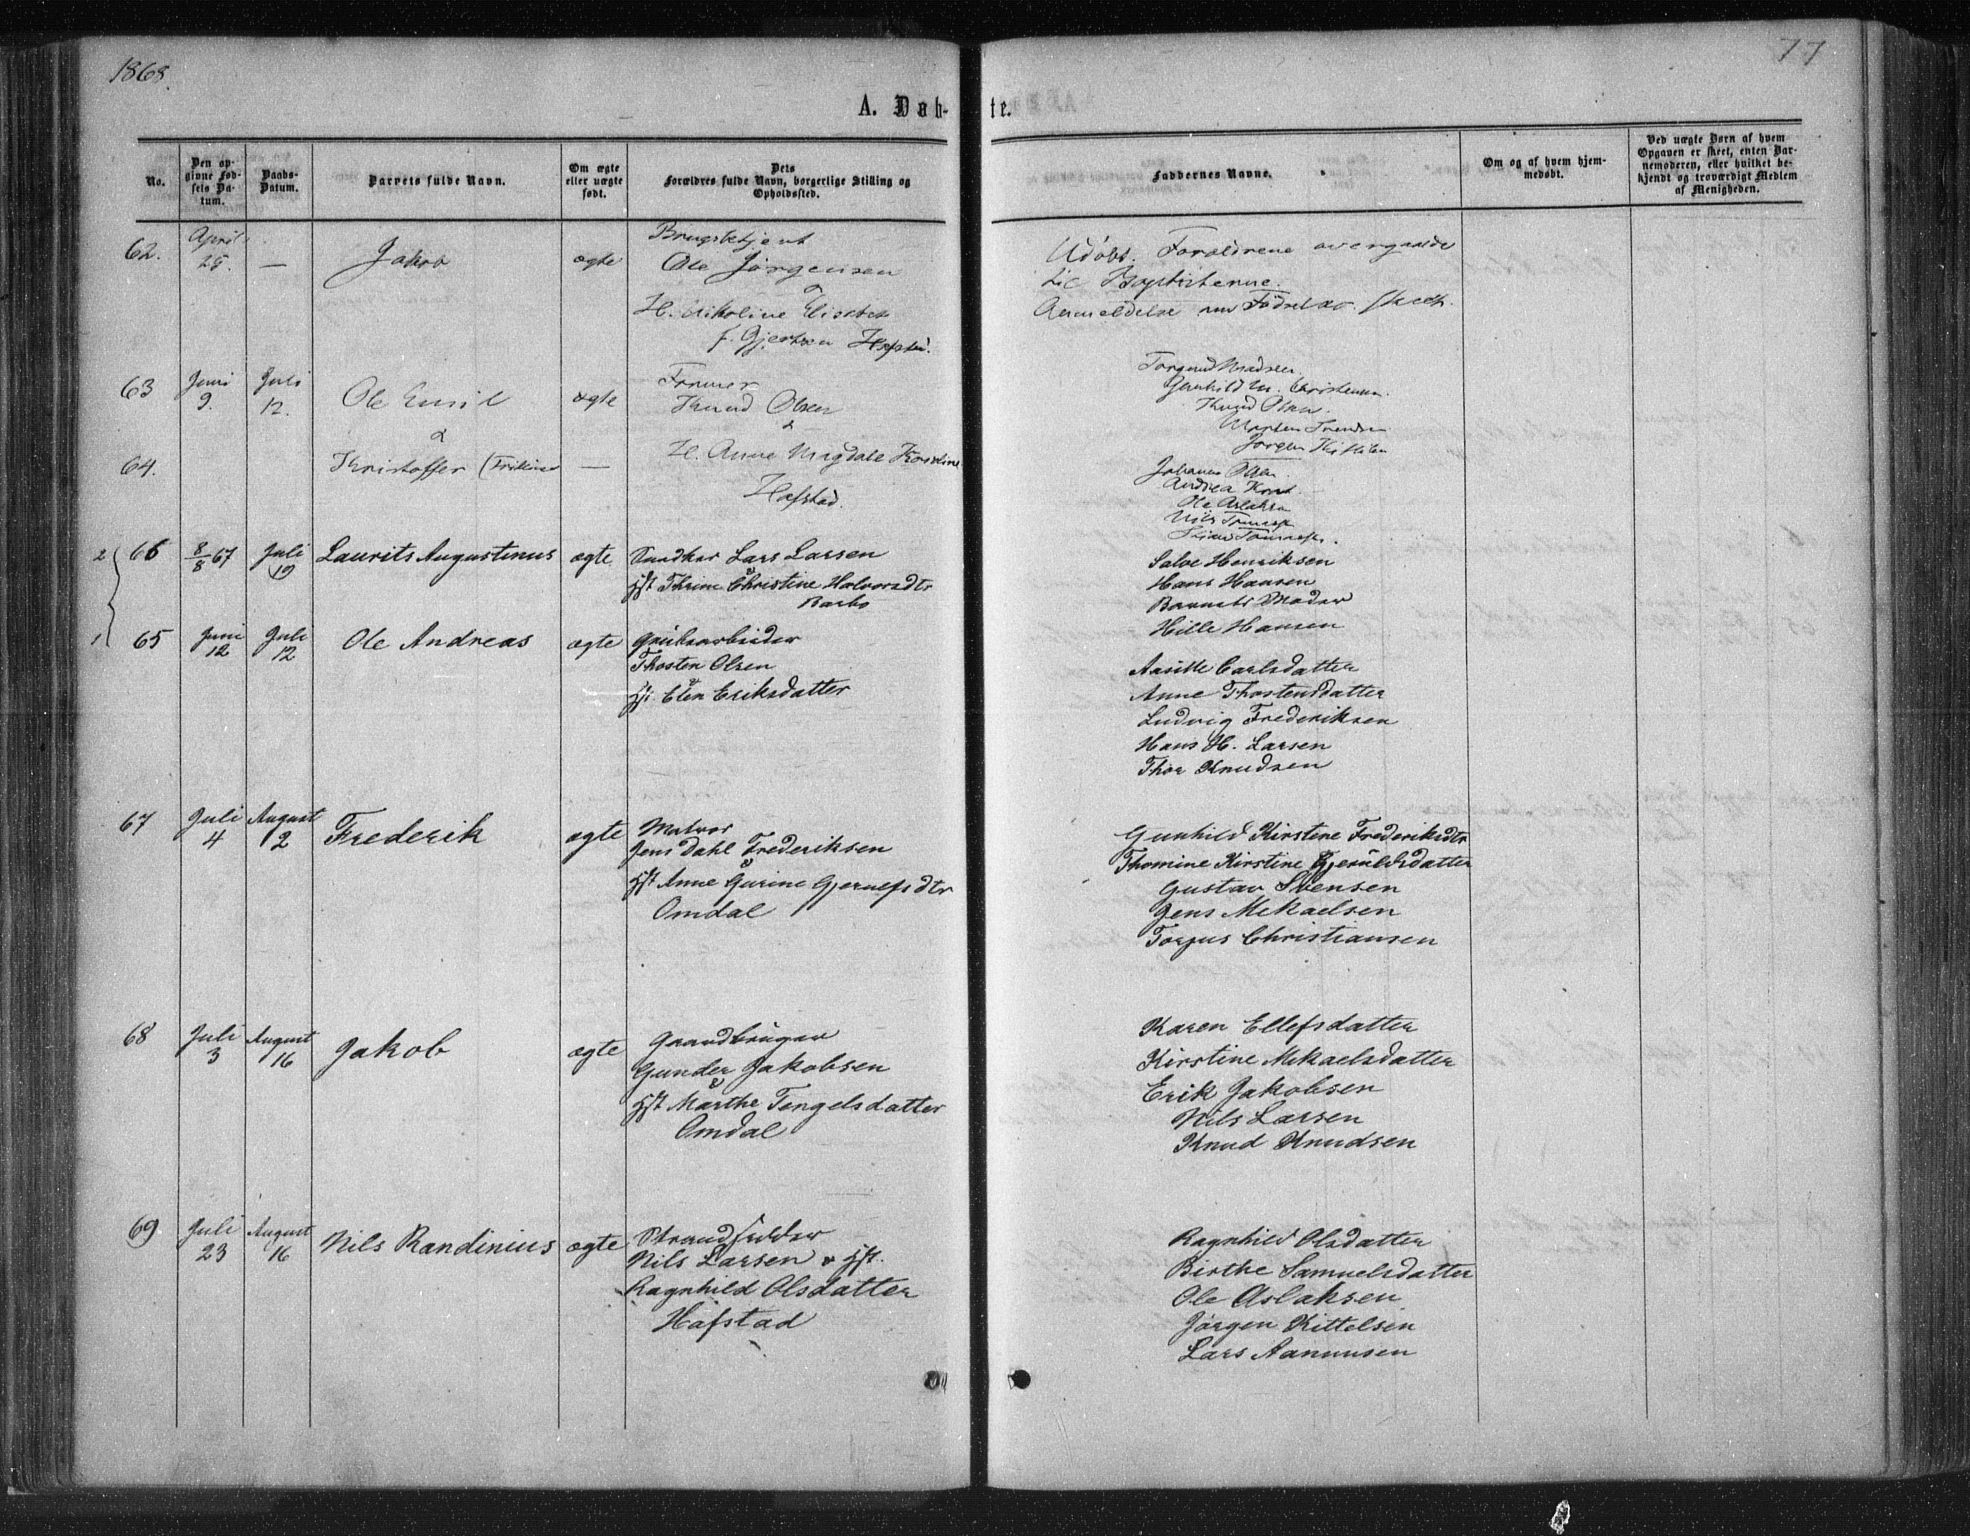 1868.
77
A. Døbte.
No.
Den opgivne Fødsels Datum.
Daabs-Datum.
Barnets fulde Navn.
Om ægte eller uægte født.
Dets Forældres fulde Navn, borgerlige Stilling og Opholdssted.
Faddernes Navne.
Om og af hvem hjemmedøbt.
Ved uægte Børn af hvem Opgaven er skeet, enten Barnemoderen, eller hvilket bekjendt og troværdigt Medlem af Menigheden.
62.
April 25.
—
Jakob
ægte
Ole Jørgensen
H. Nikoline Elisabet
f. Gjertsen
Udøbt. Forældrene overgaaede
til Baptisterne.
Anmeldelse om Fødselen skeet.
63
Juni 9.
Juli 12.
Ole Emil
&
ægte
Knud Olsen
&
H. Anne
Knud Olsen
64.
Kristoffer
—
Hafstad.
Ole Aslaksen
2
66
8/8 67
Juli 19
Laurits Augustinus
ægte
Lars Larsen
&
Hst Thrine Christine Halvorsdtr
Barbo
Salve Henriksen
Hans Hansen
Barnets Moder
Hille Hansen
1
65
Juni 12
Juli 12
Ole Andreas
ægte
Grubearbeider
Thosten Olsen
&
Hst. Elen Eriksdatter
Aasille Carlsdatter
Anne Thostensdatter
Ludvig Frederiksen
Hans H. Larsen
Thor Knudsen
67
Juli 4
August 2
Frederik
ægte
Matros
Jens Dahl Frederiksen
&
Hst Anne Gurine Gjerulfsdtr
Omdal
Gunhild Kirstine Frederiksdtr
Thomine Kirstine Gjerulfsdatter
Gustav Svensen
Jens Mekaelsen
Torjus Christiansen
68
Juli 3
August 16
Jakob
ægte
Gaardbruger
Gunder Jakobsen
&
Hst Marthe Tengelsdatter
Omdal
Karen Ellefsdatter
Kirstine Mekaelsdatter
Erik Jakobsen
Nils Larsen
Knud Knudsen
69
Juli 23
August 16
Nils Randinius
ægte
Strandsidder
Nils Larsen & Hst.
Ragnhild Olsdatter
Hafstad
Ragnhild Olsdatter
Birthe Samuelsdatter
Ole Aslaksen
Jørgen Kittelsen
Lars Aanunsen